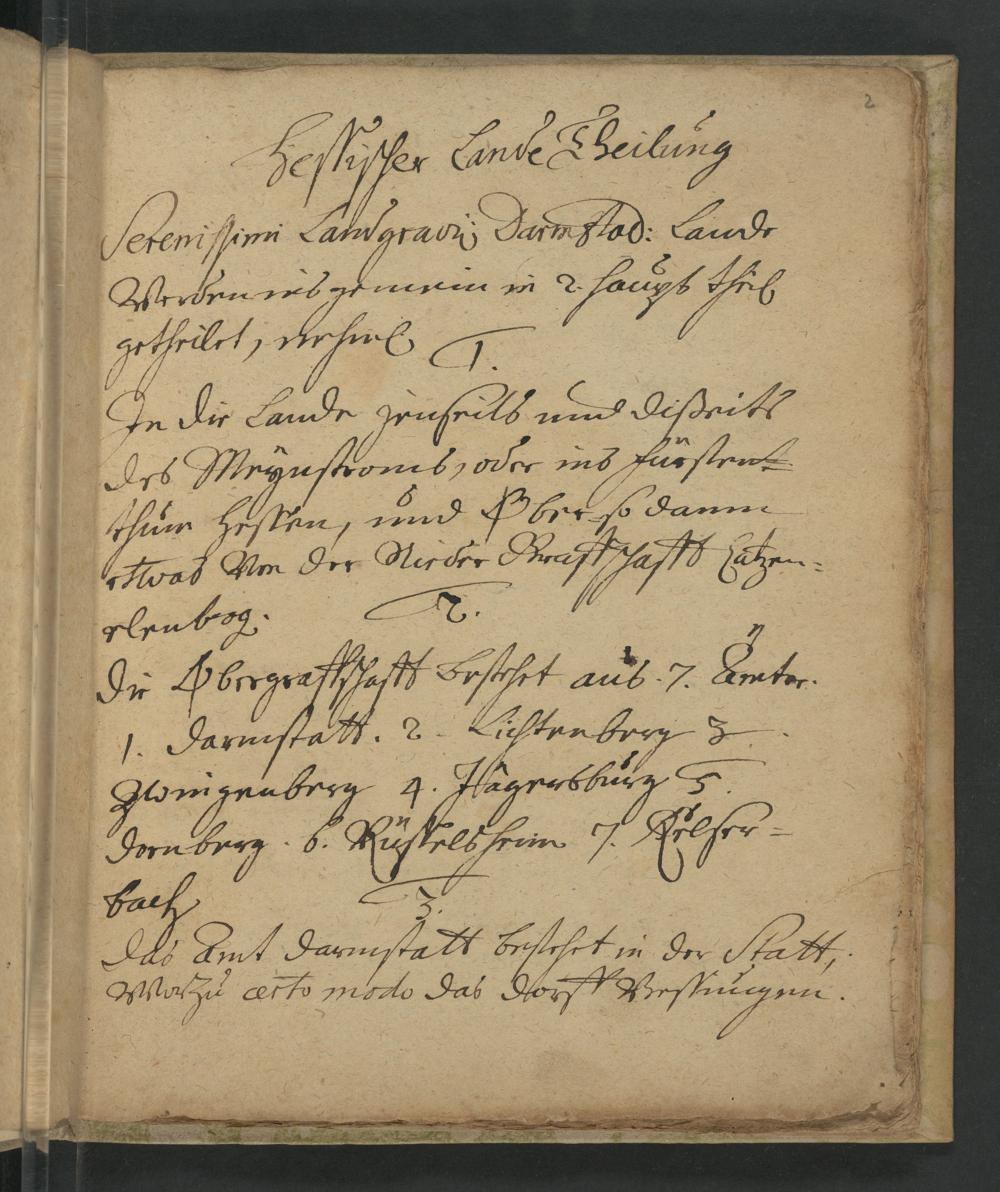 2
Hessischer Lande Theilung
Serenissimi Landgravij Darmstad: Lande
Werden ins gemein in 2. haupt theil
getheilet, nehml.
1.
In die Lande jenseits und disseits
des Meynstroms, oder ins fürsten
thum Hessen, und Ober so dann
etwas Von der Nieder Graffschafft Catzen=
elenbog.
2.
Die Obergraffschafft bestehet aus 7. Ämter.
1. Darmstatt. 2. Lichtenberg 3.
Zwingenberg 4. Jägersburg 5.
Dornberg. 6. Rüsselsheim 7. Kelster=
bach
3.
Das Amt Darmstatt bestehet in der Statt,
Worzu certo modo das Dorff Bessungen.